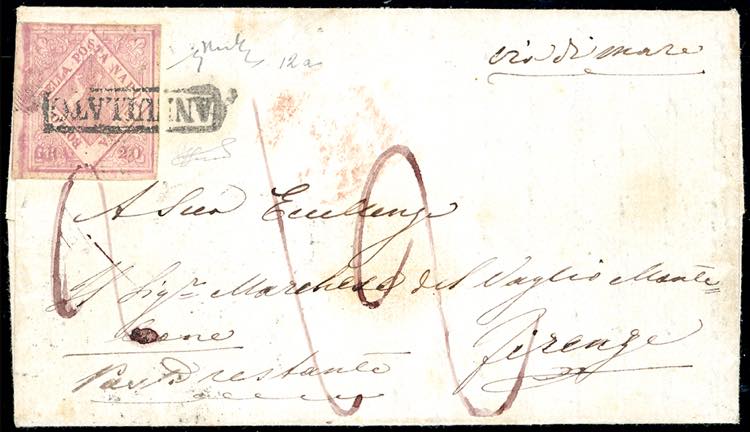 BOLLO DELLA POSTA NAPOLETANA
GRA. 20
ANNULLATO
12a
via di mare
A Sua Eccellenza
Il Sigr Marchese del Vaglio Monte=
leone
Firenze
Posta restante